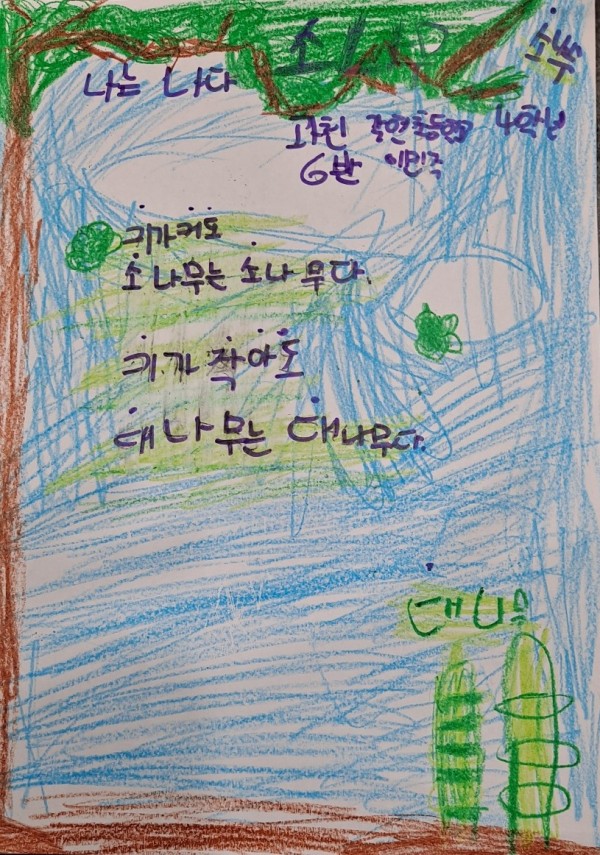 소나무
나는 나다
과천 초등학교 4학년
6반
키가커도
소나무는 소나무다.
키가 작아도
대나무는 대나무다.
대나무